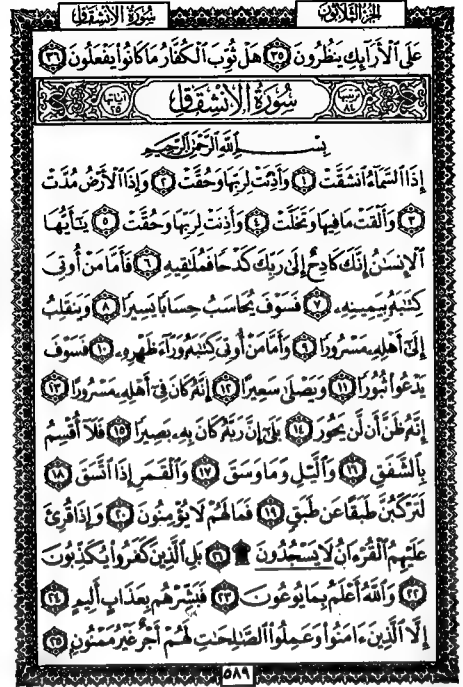 سُورَةُ الِانشِقَاقِ الجُزءُ الثَّلَاثُونَ
عَلَى ٱلْأَرَآئِكِ يَنظُرُونَ ٣٥ هَلْ ثُوِّبَ ٱلْكُفَّارُ مَا كَانُوا۟ يَفْعَلُونَ ٣٦
ترتيبها ٨٤ سُورَةُ الِانشِقَاقِ آياتها ٢٥
بِسْمِ ٱللَّهِ ٱلرَّحْمَٰنِ ٱلرَّحِيمِ
إِذَا ٱلسَّمَآءُ ٱنشَقَّتْ ١ وَأَذِنَتْ لِرَبِّهَا وَحُقَّتْ ٢ وَإِذَا ٱلْأَرْضُ مُدَّتْ
٣ وَأَلْقَتْ مَا فِيهَا وَتَخَلَّتْ ٤ وَأَذِنَتْ لِرَبِّهَا وَحُقَّتْ ٥ يَٰٓأَيُّهَا
ٱلْإِنسَٰنُ إِنَّكَ كَادِحٌ إِلَىٰ رَبِّكَ كَدْحًا فَمُلَٰقِيهِ ٦ فَأَمَّا مَنْ أُوتِىَ
كِتَٰبَهُۥ بِيَمِينِهِۦ ٧ فَسَوْفَ يُحَاسَبُ حِسَابًا يَسِيرًا ٨ وَيَنقَلِبُ
إِلَىٰٓ أَهْلِهِۦ مَسْرُورًا ٩ وَأَمَّا مَنْ أُوتِىَ كِتَٰبَهُۥ وَرَآءَ ظَهْرِهِۦ ١٠ فَسَوْفَ
يَدْعُوا۟ ثُبُورًا ١١ وَيَصْلَىٰ سَعِيرًا ١٢ إِنَّهُۥ كَانَ فِىٓ أَهْلِهِۦ مَسْرُورًا ١٣
إِنَّهُۥ ظَنَّ أَن لَّن يَحُورَ ١٤ بَلَىٰٓ إِنَّ رَبَّهُۥ كَانَ بِهِۦ بَصِيرًا ١٥ فَلَآ أُقْسِمُ
بِٱلشَّفَقِ ١٦ وَٱلَّيْلِ وَمَا وَسَقَ ١٧ وَٱلْقَمَرِ إِذَا ٱتَّسَقَ ١٨
لَتَرْكَبُنَّ طَبَقًا عَن طَبَقٍ ١٩ فَمَا لَهُمْ لَا يُؤْمِنُونَ ٢٠ وَإِذَا قُرِئَ
عَلَيْهِمُ ٱلْقُرْءَانُ لَا يَسْجُدُونَ ۩ ٢١ بَلِ ٱلَّذِينَ كَفَرُوا۟ يُكَذِّبُونَ
٢٢ وَٱللَّهُ أَعْلَمُ بِمَا يُوعُونَ ٢٣ فَبَشِّرْهُم بِعَذَابٍ أَلِيمٍ ٢٤
إِلَّا ٱلَّذِينَ ءَامَنُوا۟ وَعَمِلُوا۟ ٱلصَّٰلِحَٰتِ لَهُمْ أَجْرٌ غَيْرُ مَمْنُونٍ ٢٥
٥٨٩